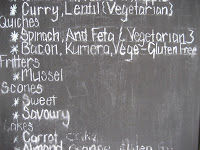 * Curry, Lentil {Vegetarian}
Quiches
* Spinach, And Feta {Vegetarian}
* Bacon, Kumera, Vege - Gluten Free
Fritters
* Mussel
Scones
* Sweet
* Savoury
Cakes
Carrot Cake
Almond Orange